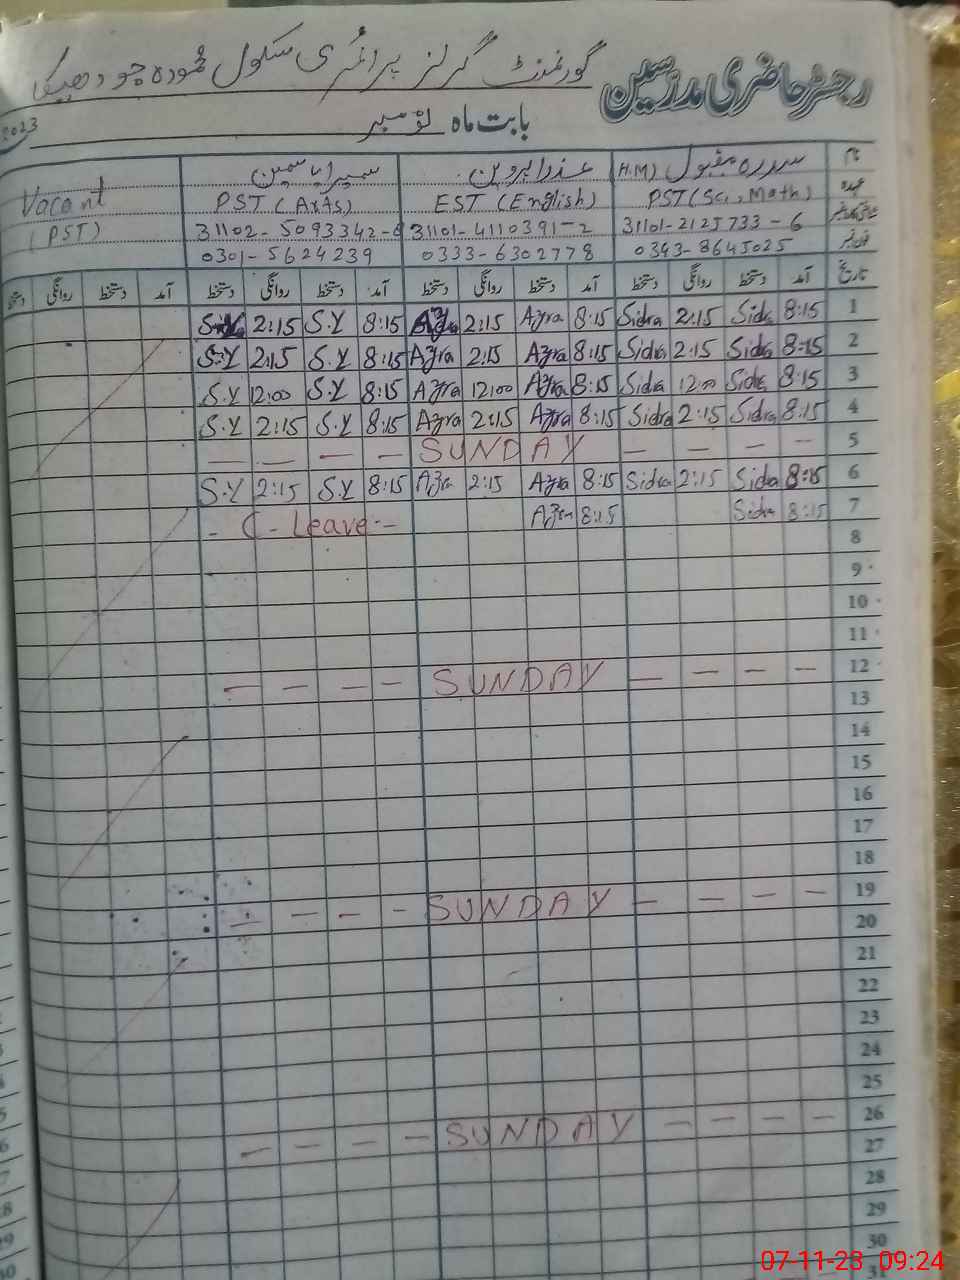 رجسٹر حاضری مدرسین گورنمنٹ گرلز پرائمری سکول
بابت ماہ نومبر 2023
نام سدرہ مقبول (H.M) عذرا پروین سمیرا یاسمین Vacant
عہدہ PST (Sci, Math) EST (English) PST (Arts) (PST)
31101-2125733-6 31101-4110391-2 31102-5093342-
فون نمبر 0343-8645025 0333-6302778 0301-5624239
تاریخ آمد دستخط روانگی دستخط آمد دستخط روانگی دستخط آمد دستخط روانگی دستخط آمد دستخط روانگی دستخط
1 8:15 Sidra 2:15 Sidra 8:15 Azra 2:15 8:15 S.Y 2:15
2 8:15 Sidra 2:15 Sidra 8:15 Azra 2:15 Azra 8:15 S.Y 2:15 S.Y
3 8:15 Sidra 12:00 Sidra 8:15 Azra 12:00 Azra 8:15 S.Y 12:00 S.Y
4 8:15 Sidra 2:15 Sidra 8:15 Azra 2:15 Azra 8:15 S.Y 2:15 S.Y
5 — — — — SUNDAY — — — —
6 8:15 Sidra 2:15 Sidra 8:15 Azra 2:15 Azra 8:15 S.Y 2:15 S.Y
7 8:15 Sidra 8:15 Azra - C - Leave -
8
9
10
11
12 — — — — SUNDAY — — — —
13
14
15
16
17
18
19 — — — — SUNDAY — — — —
20
21
22
23
24
25
26 — — — — SUNDAY — — — —
27
28
29
30
07-11-23 09:24